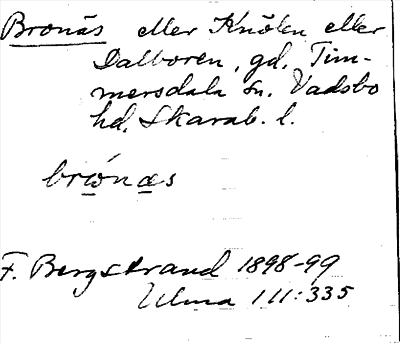 Bronäs eller Knölen eller
Dalboren, gd, Tim-
mersdala sn. Vadsbo
hd, Skarab. l.
brωnæs
F. Bergstrand 1898-99
Ulma 111:335